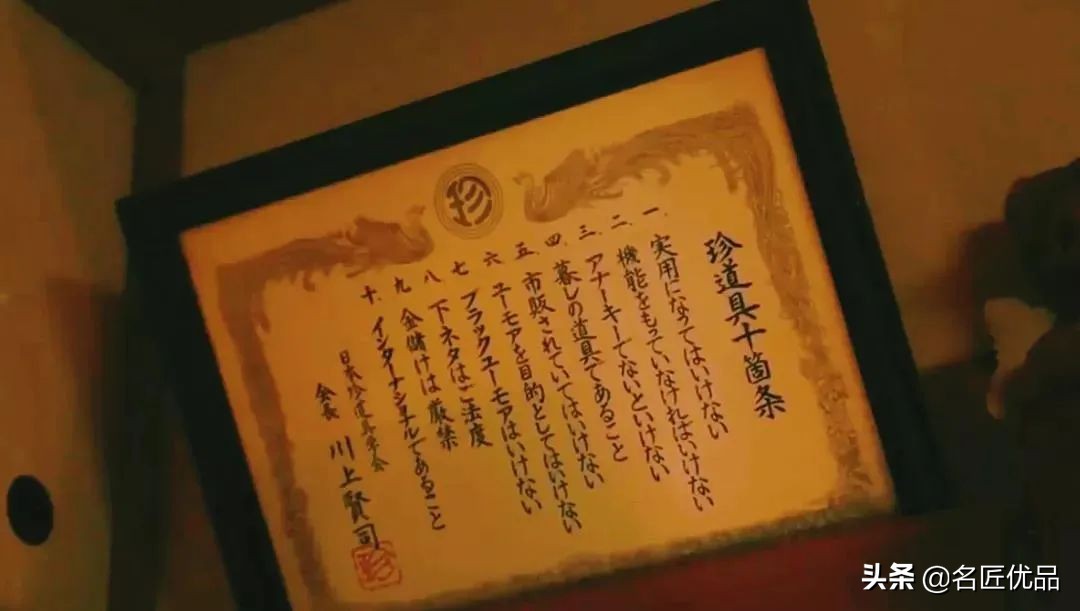 珍
珍道具十箇条
一、実用になってはいけない
二、機能をもっていなければいけない
三、アナーキーでないといけない
四、暮しの道具であること
五、市販されていてはいけない
六 ユーモアを目的としてはいけない
七 ブラックユーモアはいけない
八 下ネタはご法度
九 金賭けは厳禁
十、インターナショナルであること
日本珍道具学会
会長 川上賢司
珍
头条 @名匠优品